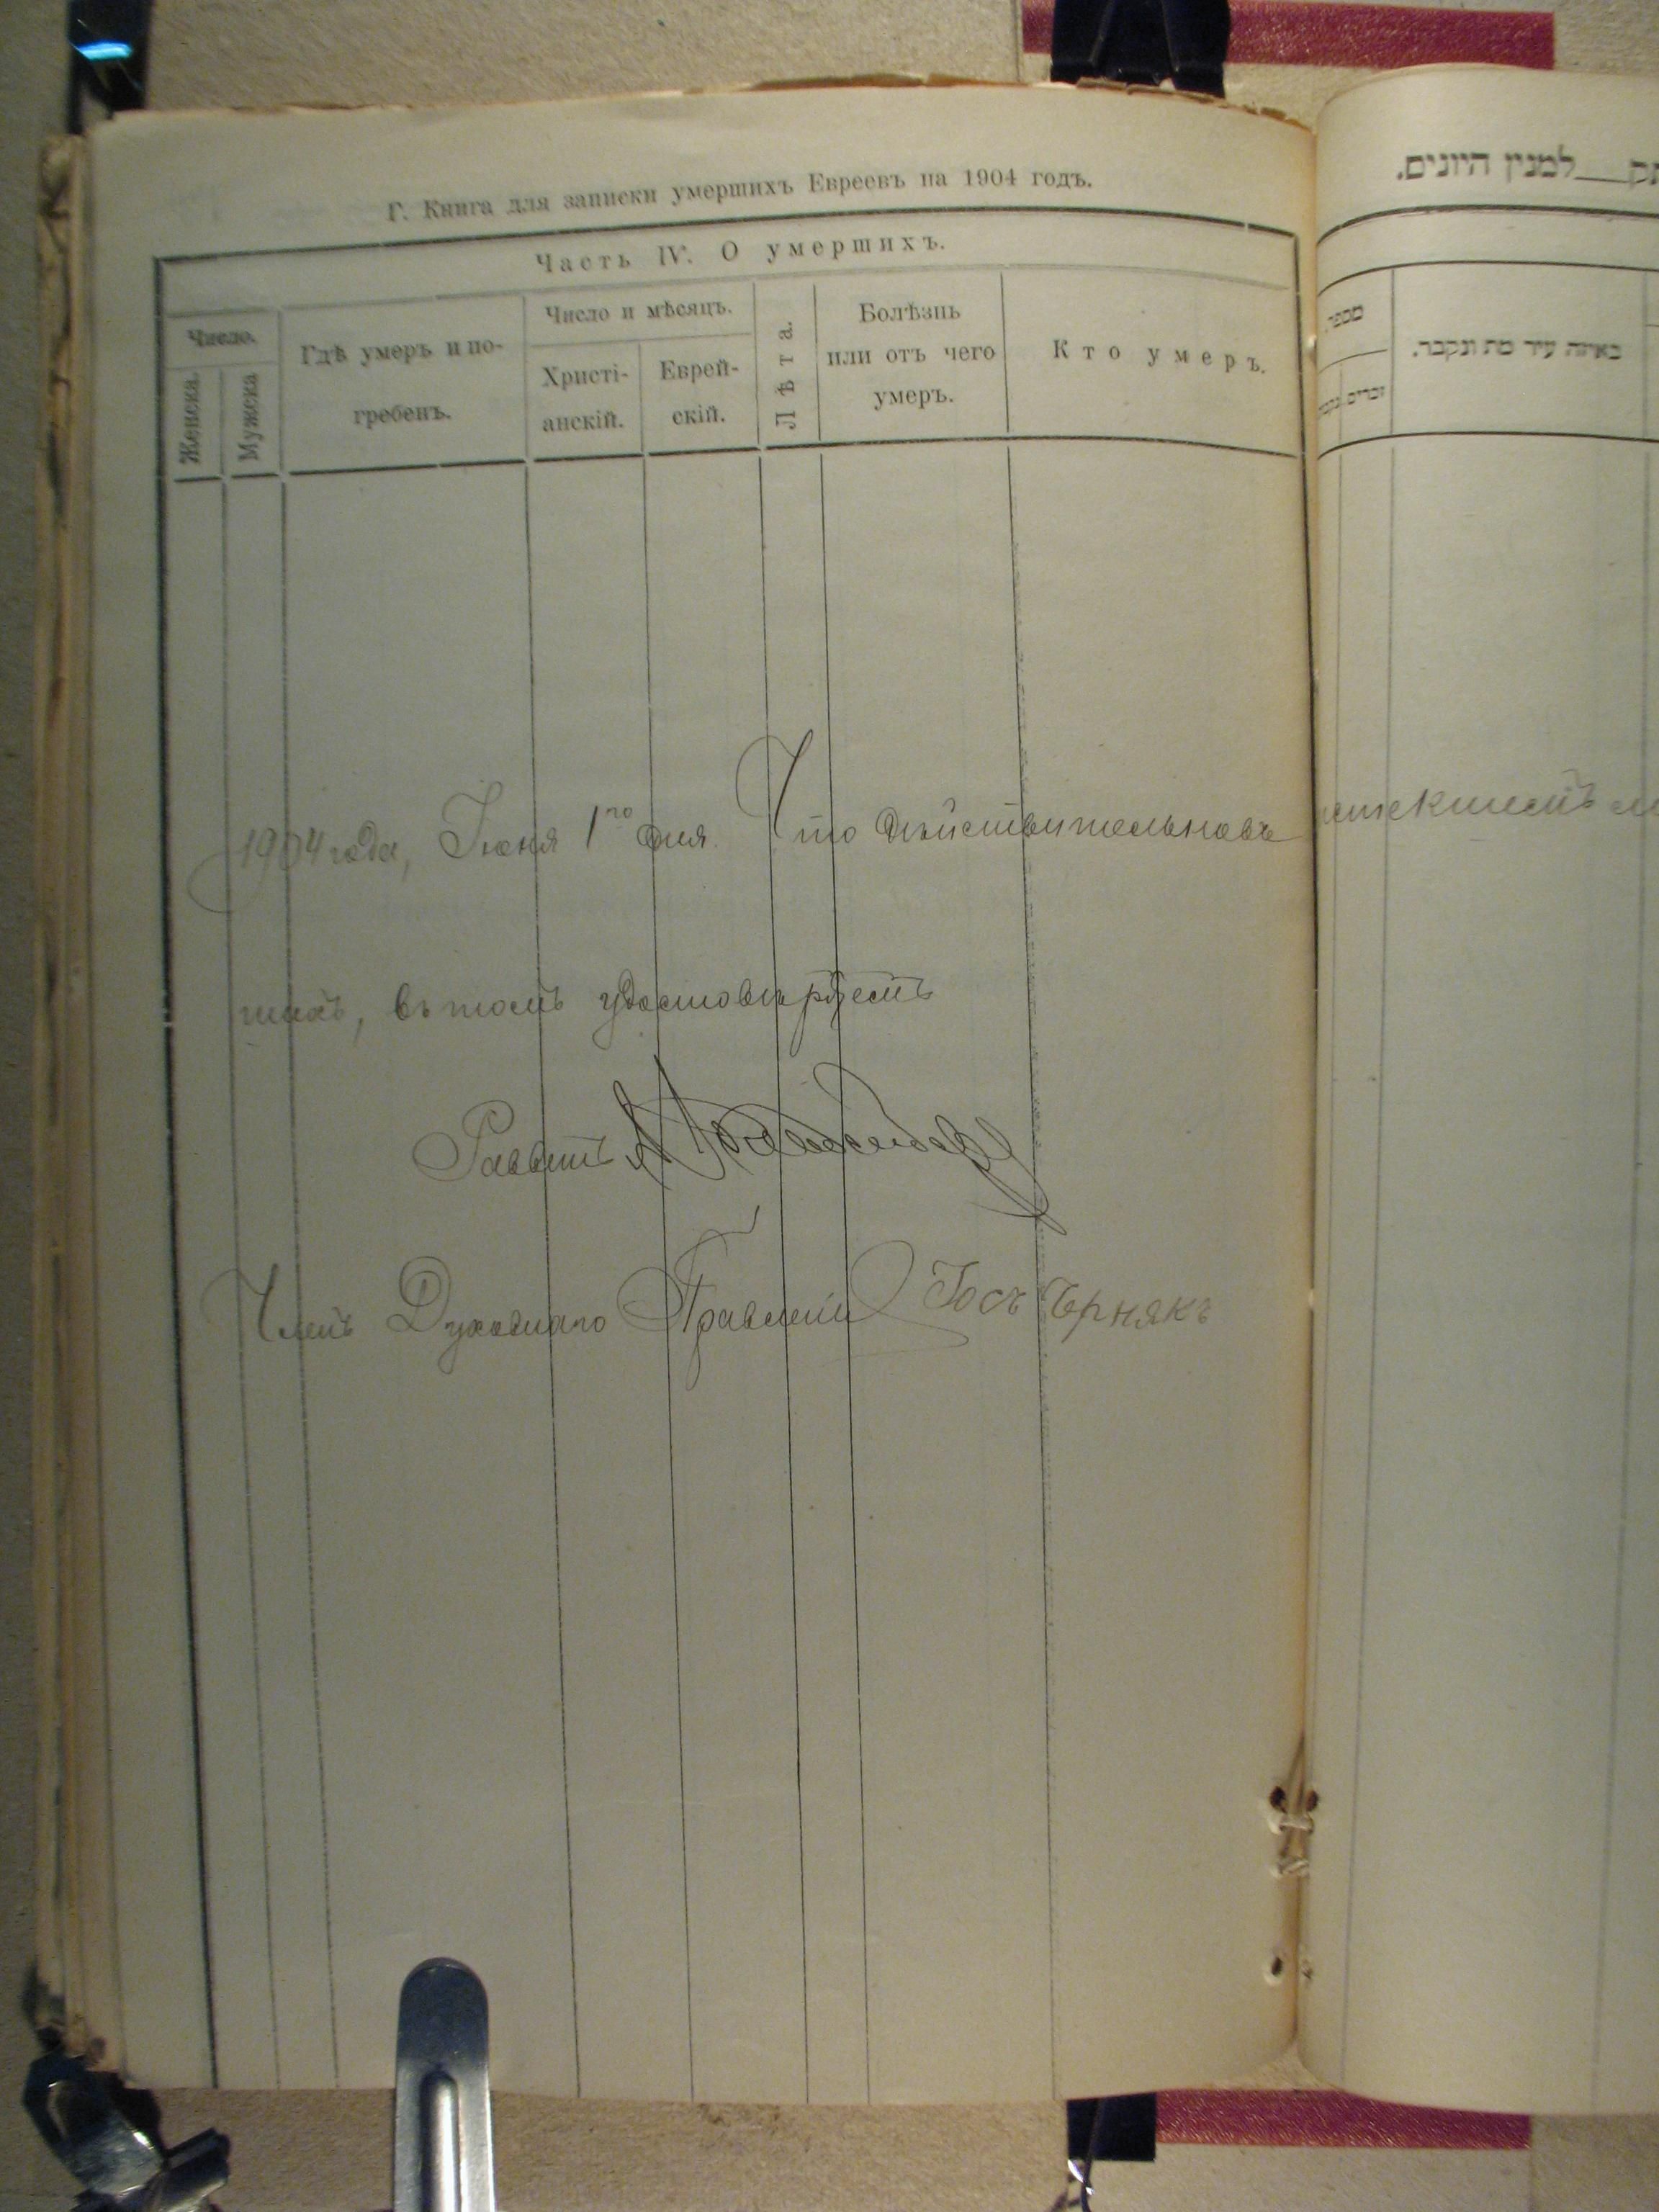 Г. Книга для записки умершихъ Евреевъ на 1904 годъ.
Часть IV. О умершихъ.
Число.
Женска.
Мужска
Гдѣ умеръ и по-
гребенъ.
Число и мѣсяцъ.
Христі-
анскій.
Еврей-
скій.
Лѣта.
Болѣзнь
или отъ чего
умеръ.
Кто умеръ.
למנין היונים.
מספר
זכרים
באיזה עיר מת ונקבר.
1904 года, Іюня 1го дня. Что дѣйствительно въ истекшемъ
шихъ, въ томъ удостовѣряетъ
Раввинъ
Членъ Духовнаго Правленія Іосъ Чернякъ